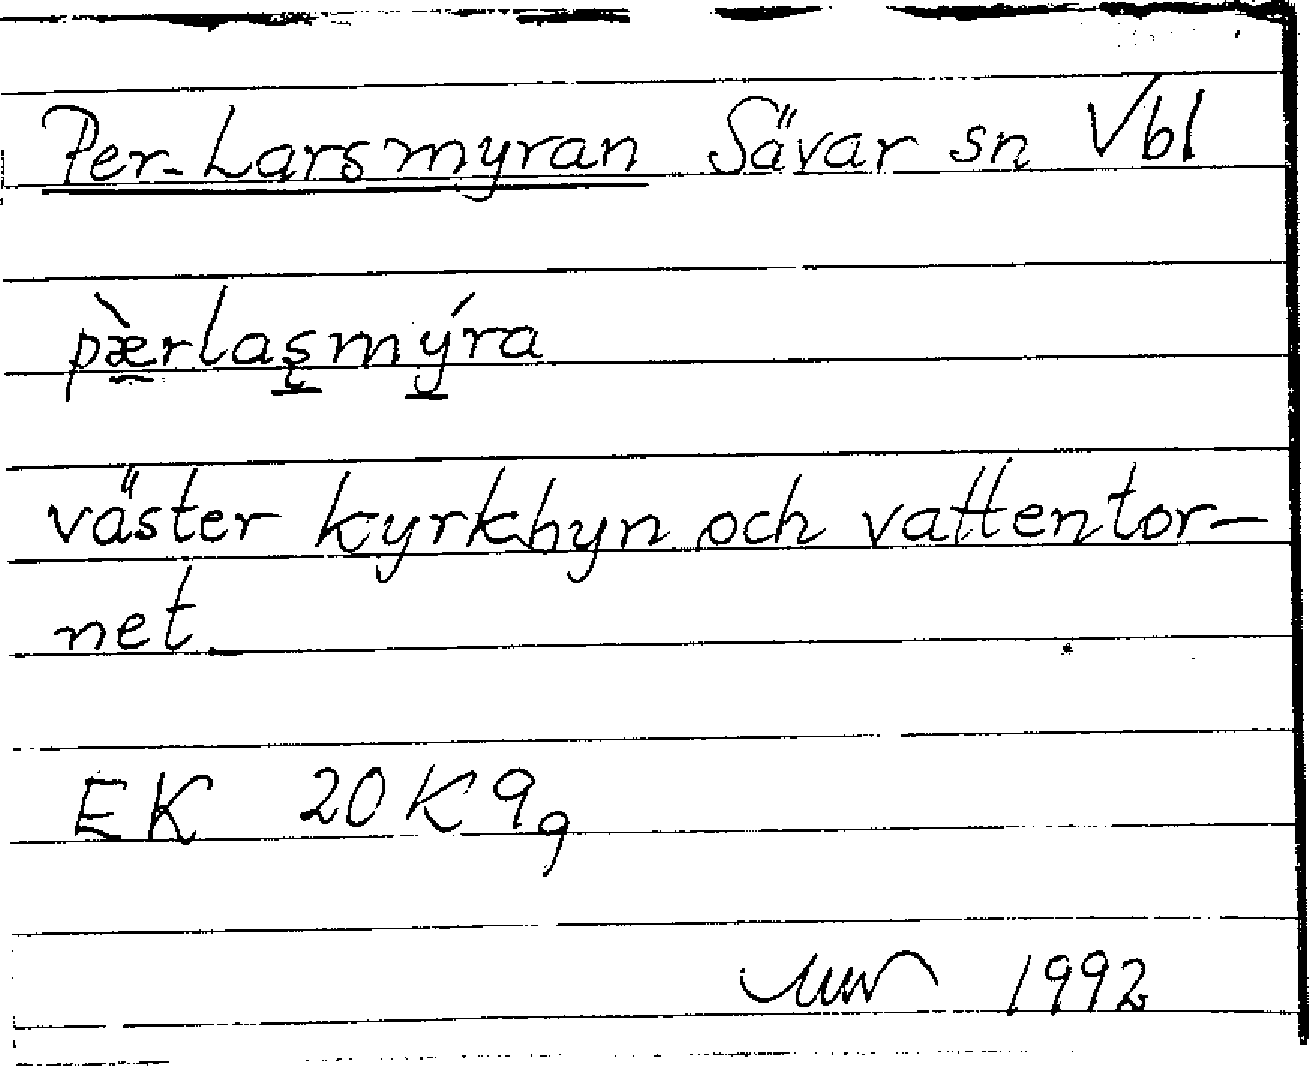 Per-Larsmyran Sävar sn Vbl
pæ̀rlaʂmýra
väster kyrkbyn och vattentor-
net.
EK 20K 9q
1992